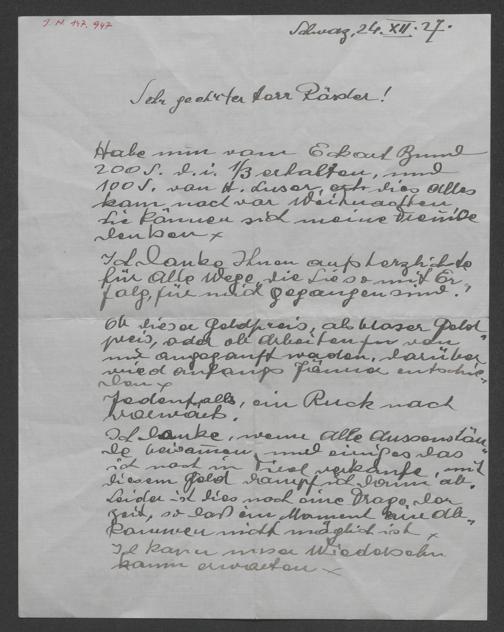 J. N. 147.947
Schwaz, 24. XII. 27.
Sehr geehrter Herr Röder!
Habe nun vom Eckart Bund
200 S. d. i. 1/3 erhalten, und
100 S. von H. Luser, dies Alles
kam noch vor Weihnachten
Sie können sich meine Freude
denken x
Ich danke Ihnen aufs herzlichste
für Alle Wege, die Sie so mit Er
folg, für mich gegangen sind.
Ob dieser Geldpreis, als bloser Geld
preis, oder ob Arbeiten von
mir angekauft werden, darüber
wird anfangs Jänner entschie-
den x
Jedenfalls, ein Ruck nach
vorwärts.
Ich danke, wenn Alle Aussenstän
de beisamen, und einiges das
ich noch in Tirol verkaufe, mit
diesem Geld dampf ich dann ab.
Leider ist dies noch eine Frage der
Zeit, so daß im Moment ein Ab-
kommen nicht möglich ist x
Ich kann unser Wiedersehn
kaum erwarten x